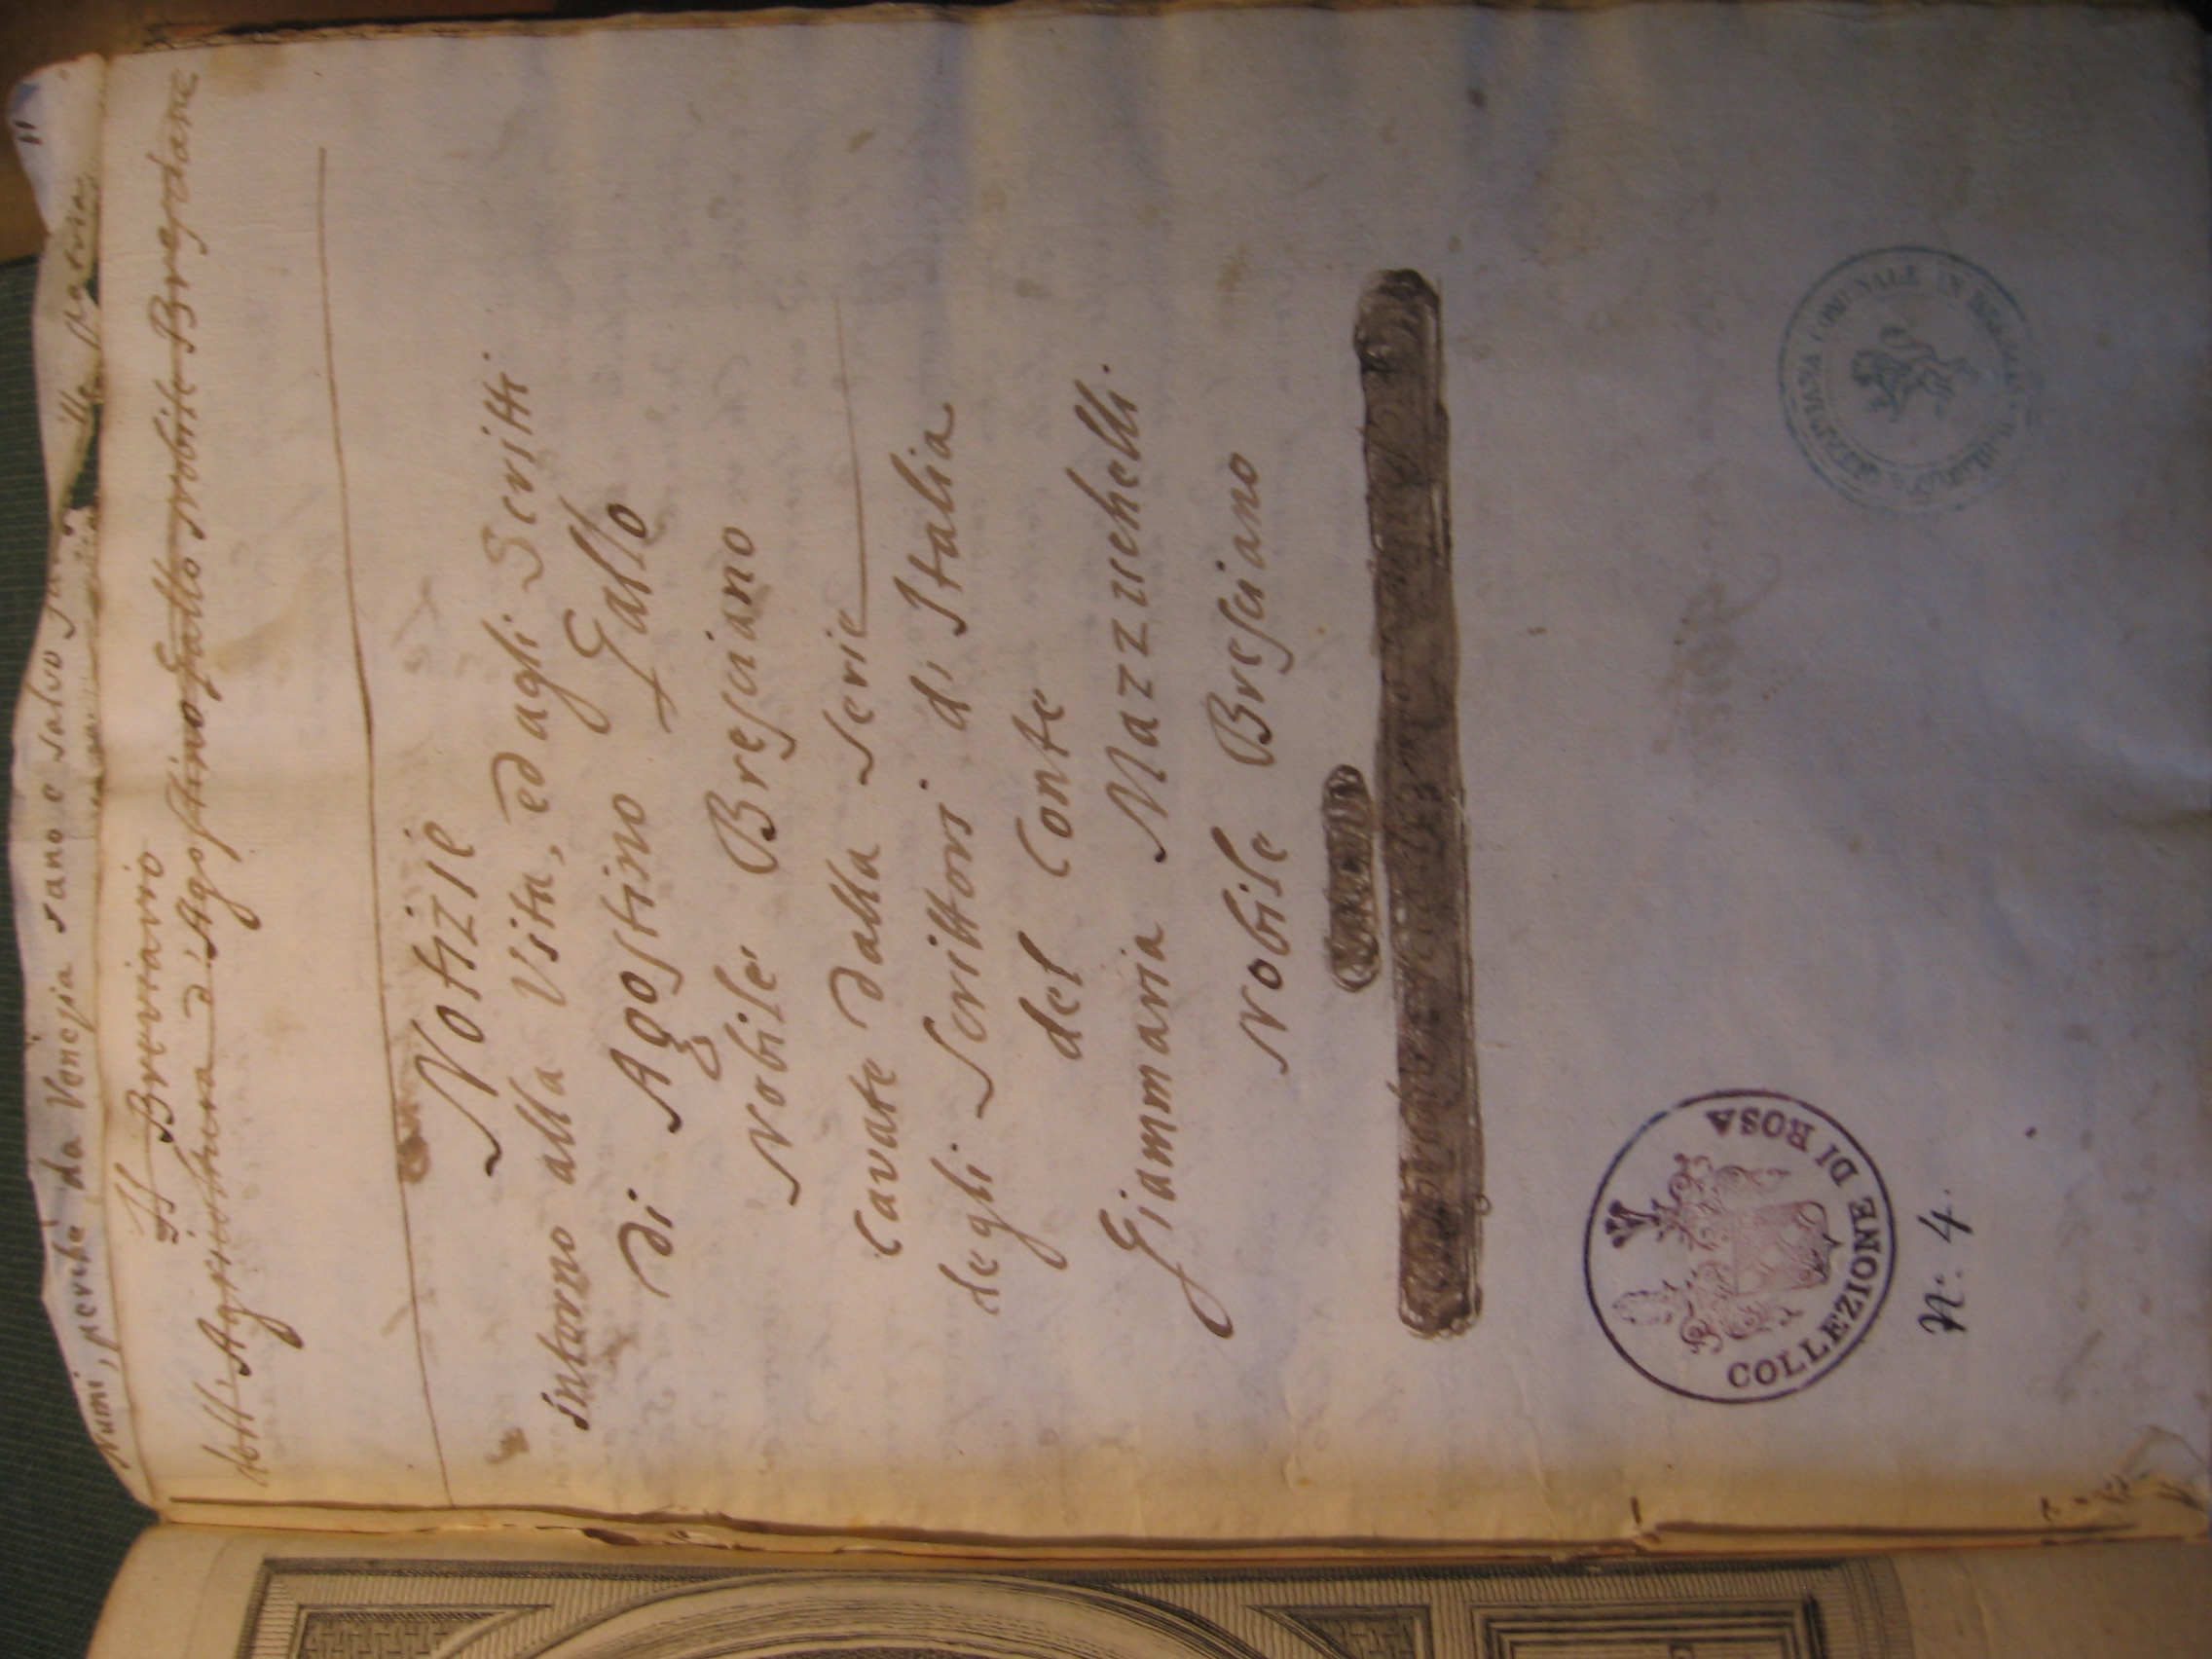 Numi, perchè da Venezia sano e salvo patria
Il Breviario
dell'Agricoltura d'Agostino Gallo Nobile Bresciano
Notizie
intorno alla Vita, ed agli Scritti
di Agostino Gallo
Nobile Bresciano
cavate dalla Serie
degli Scrittori d'Italia
del Conte
Giammaria Mazzuchelli
Nobile Bresciano
COLLEZIONE DI ROSA
N. 4.
COMUNALE